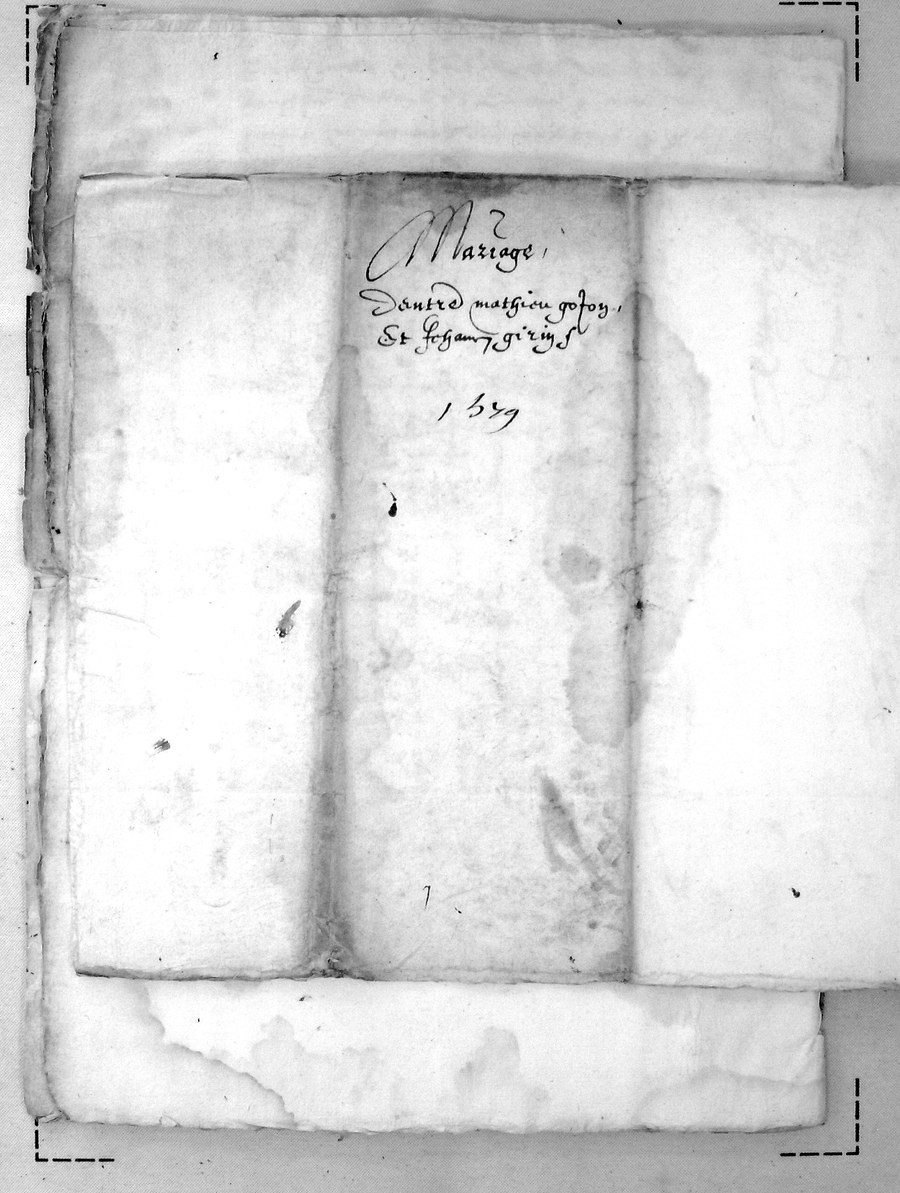 Mariage
Dentre mathieu gojon
Et Jehan girin
1579